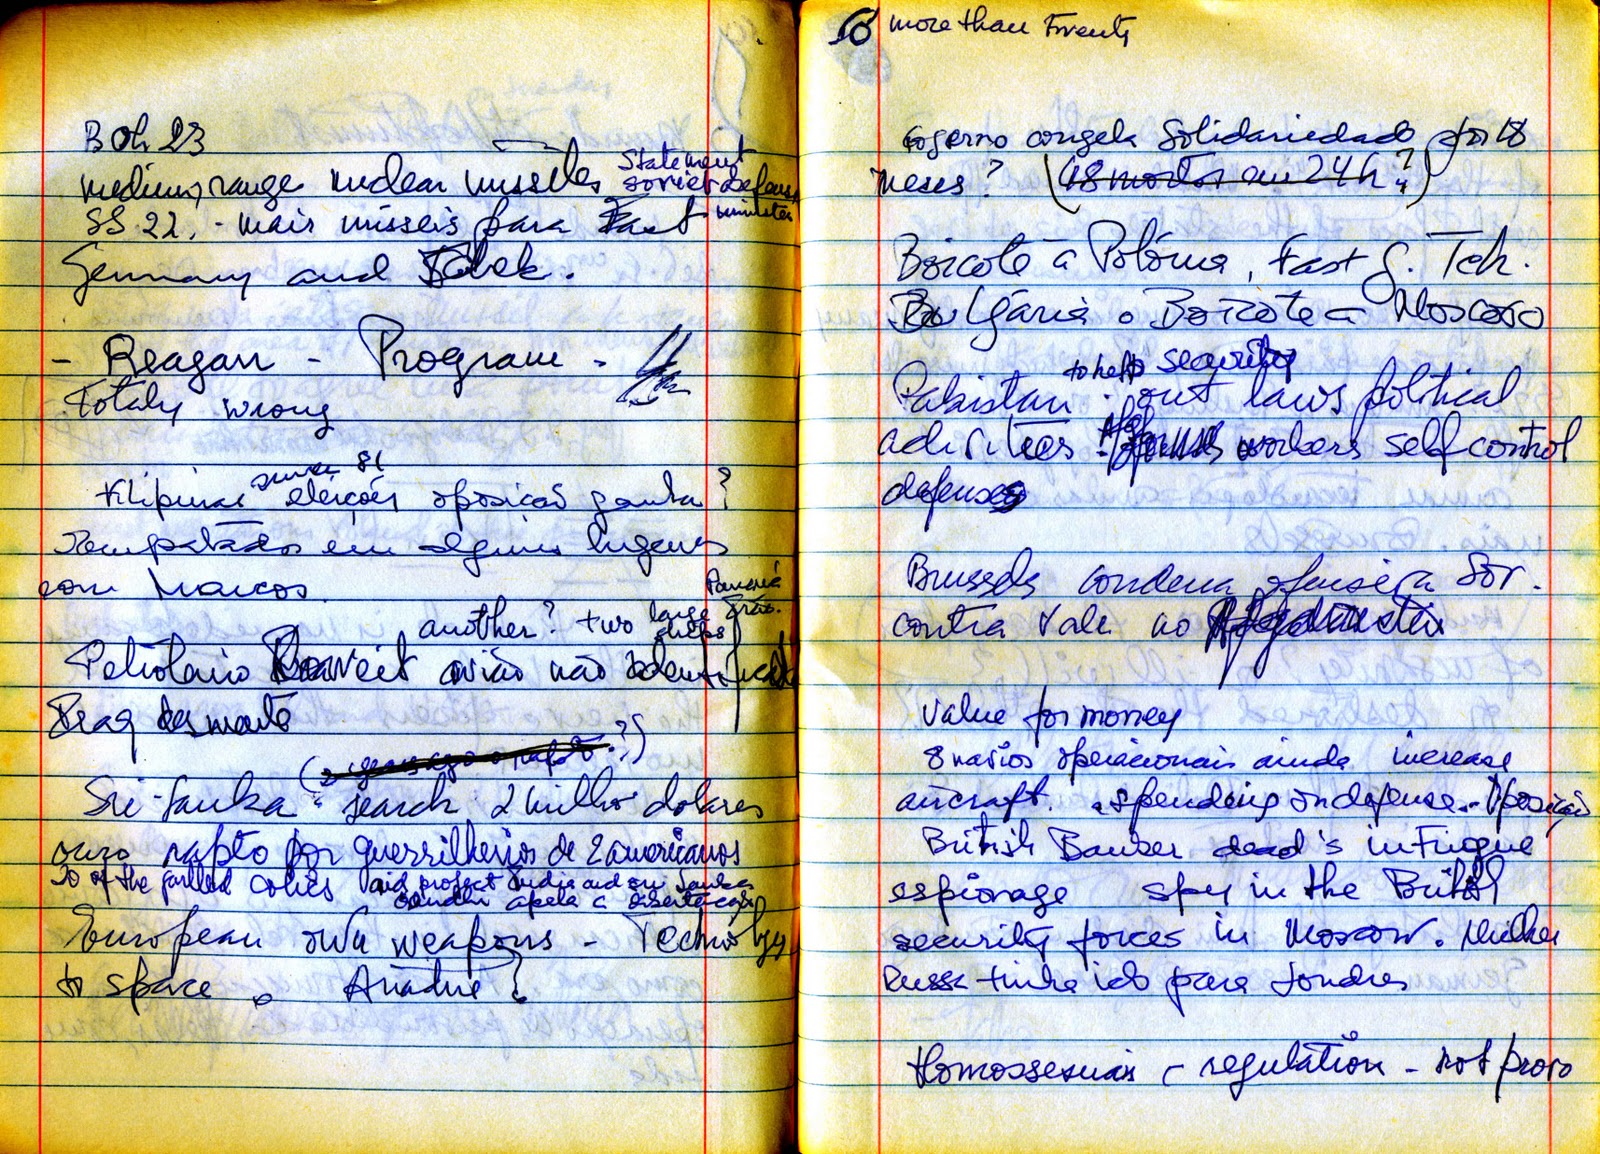 B Oh 23
medium range nuclear missiles Statement soviet defense minister
SS 22. - mais misseis para East
Germany and
- Reagan - Program -
Totaly wrong
Filipinas since 81 eleições oposição ganha?
em alguns lugares
com Marcos.
another? two large ships Panamá
Petroleiro Kuweit avião não identificado
Iraq desmente
(2 years ago o rapto?)
Sri-Lanka - search 2 milhões dolares
ouro rapto por guerrilheiros de 2 americanos
20 of the aid project India and Sri Lanka
Gandhi apela a
European own weapons - Technology
to space. Ariadne?
more than Twenty
Governo congela Solidariedade por 18
meses? (48 mortos em 24h?)
Boicote à Polónia, East G. Tch.
Bulgária o Boicote a Moscovo
Pakistan to help security - out laws political
activities workers self control
defense
Brussels condena ofensiva Sov.
contra Vale no Afganistan
Value for money
8 navios operacionais ainda increase
aircraft spending on defense - oposição
British Banker dead's intrigue
espionage spy in the British
security forces in Moscow. Mulher
Russa tinha ido para Londres
Homossexuais - regulation - not prov